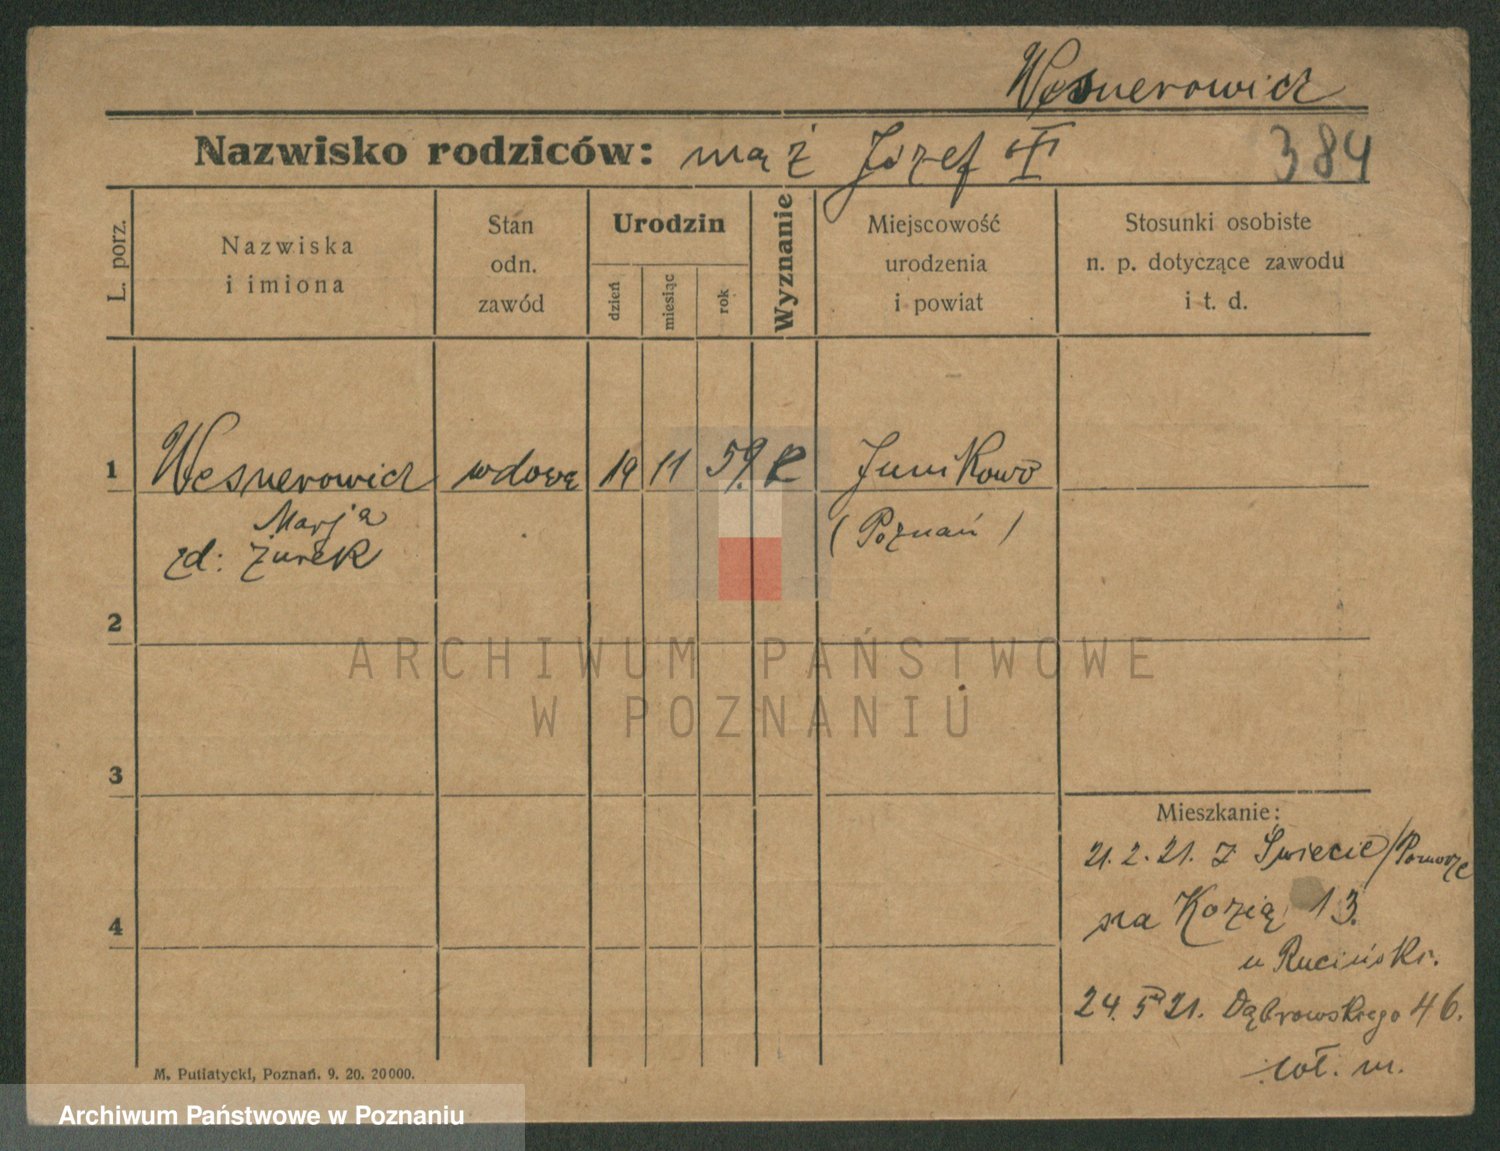 Wesnerowicz
Nazwisko rodziców: mąż Józef
384
L. porz.
Nazwiska
i imiona
Stan
odn.
zawód
Urodzin
dzień
miesiąc
rok
Wyznanie
Miejscowość
urodzenia
i powiat
Stosunki osobiste
n. p. dotyczące zawodu
i t. d.
1 Wesnerowicz wdowa 19 11 59. k Junikowo
Marja (Poznań)
zd: Żurek
2
3
4
Mieszkanie:
21. 2. 21. z Świecie/Pomorze
na Kozią 13.
u Rucińsk.
24. 5 21. Dąbrowskiego 46.
M. Putiatycki, Poznań. 9. 20. 20000.
ARCHIWUM PAŃSTWOWE
W POZNANIU
Archiwum Państwowe w Poznaniu